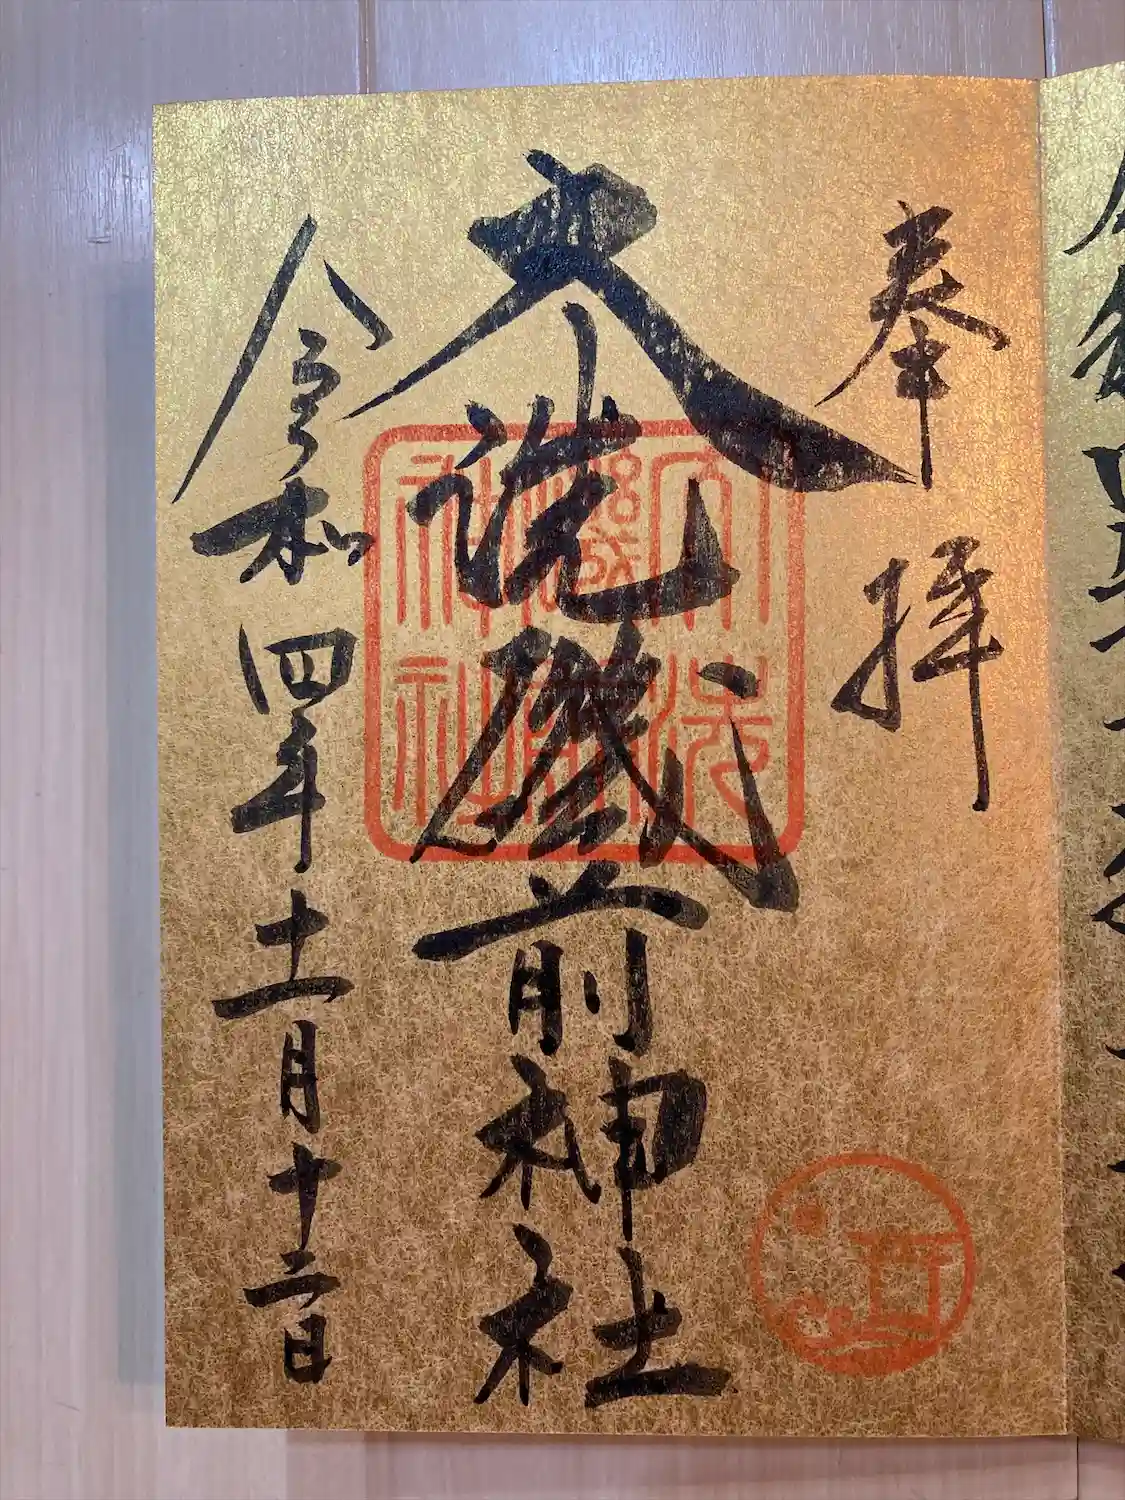 奉拝
大洗磯前神社
令和四年十一月十二日
大洗
磯前
神社